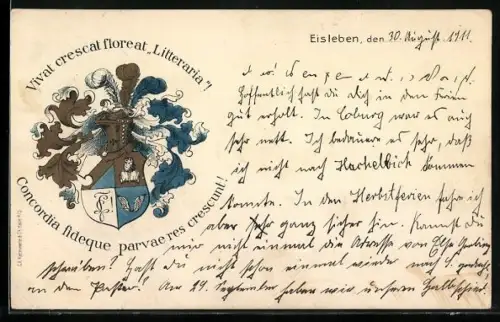 Vivat crescat floreat „Litteraria"!
Concordia fideque parvae res crescunt!
Eisleben, den 30. August 1911.
Hoffentlich hast du dich in den Ferien
gut erholt. In Coburg war es auch
sehr nett. Ich bedauere es sehr, daß
ich nicht nach Hachelbich kommen
konnte. In den Herbstferien fahr ich
aber sehr ganz sicher hin. Kannst du
mir nicht einmal die Adresse von Else
schreiben! Hast du nicht schon einmal wieder nach
an den Am 29. September haben wir unseren